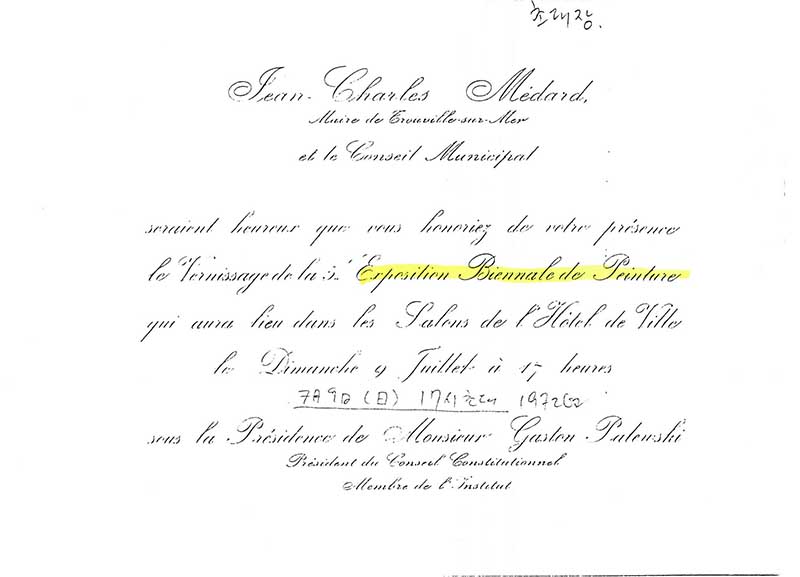 초대장.
Jean-Charles Médard,
Maire de Trouville-sur-Mer
et le Conseil Municipal
seraient heureux que vous honoriez de votre présence
le Vernissage de la "Exposition Biennale de Peinture
qui aura lieu dans les Salons de l'Hôtel de Ville
le Dimanche 9 Juillet à 17 heures
7月9日 (日) 17시초대 1972
sous la Présidence de Monsieur Gaston Palewski
Président du Conseil Constitutionnel
Membre de l'Institut